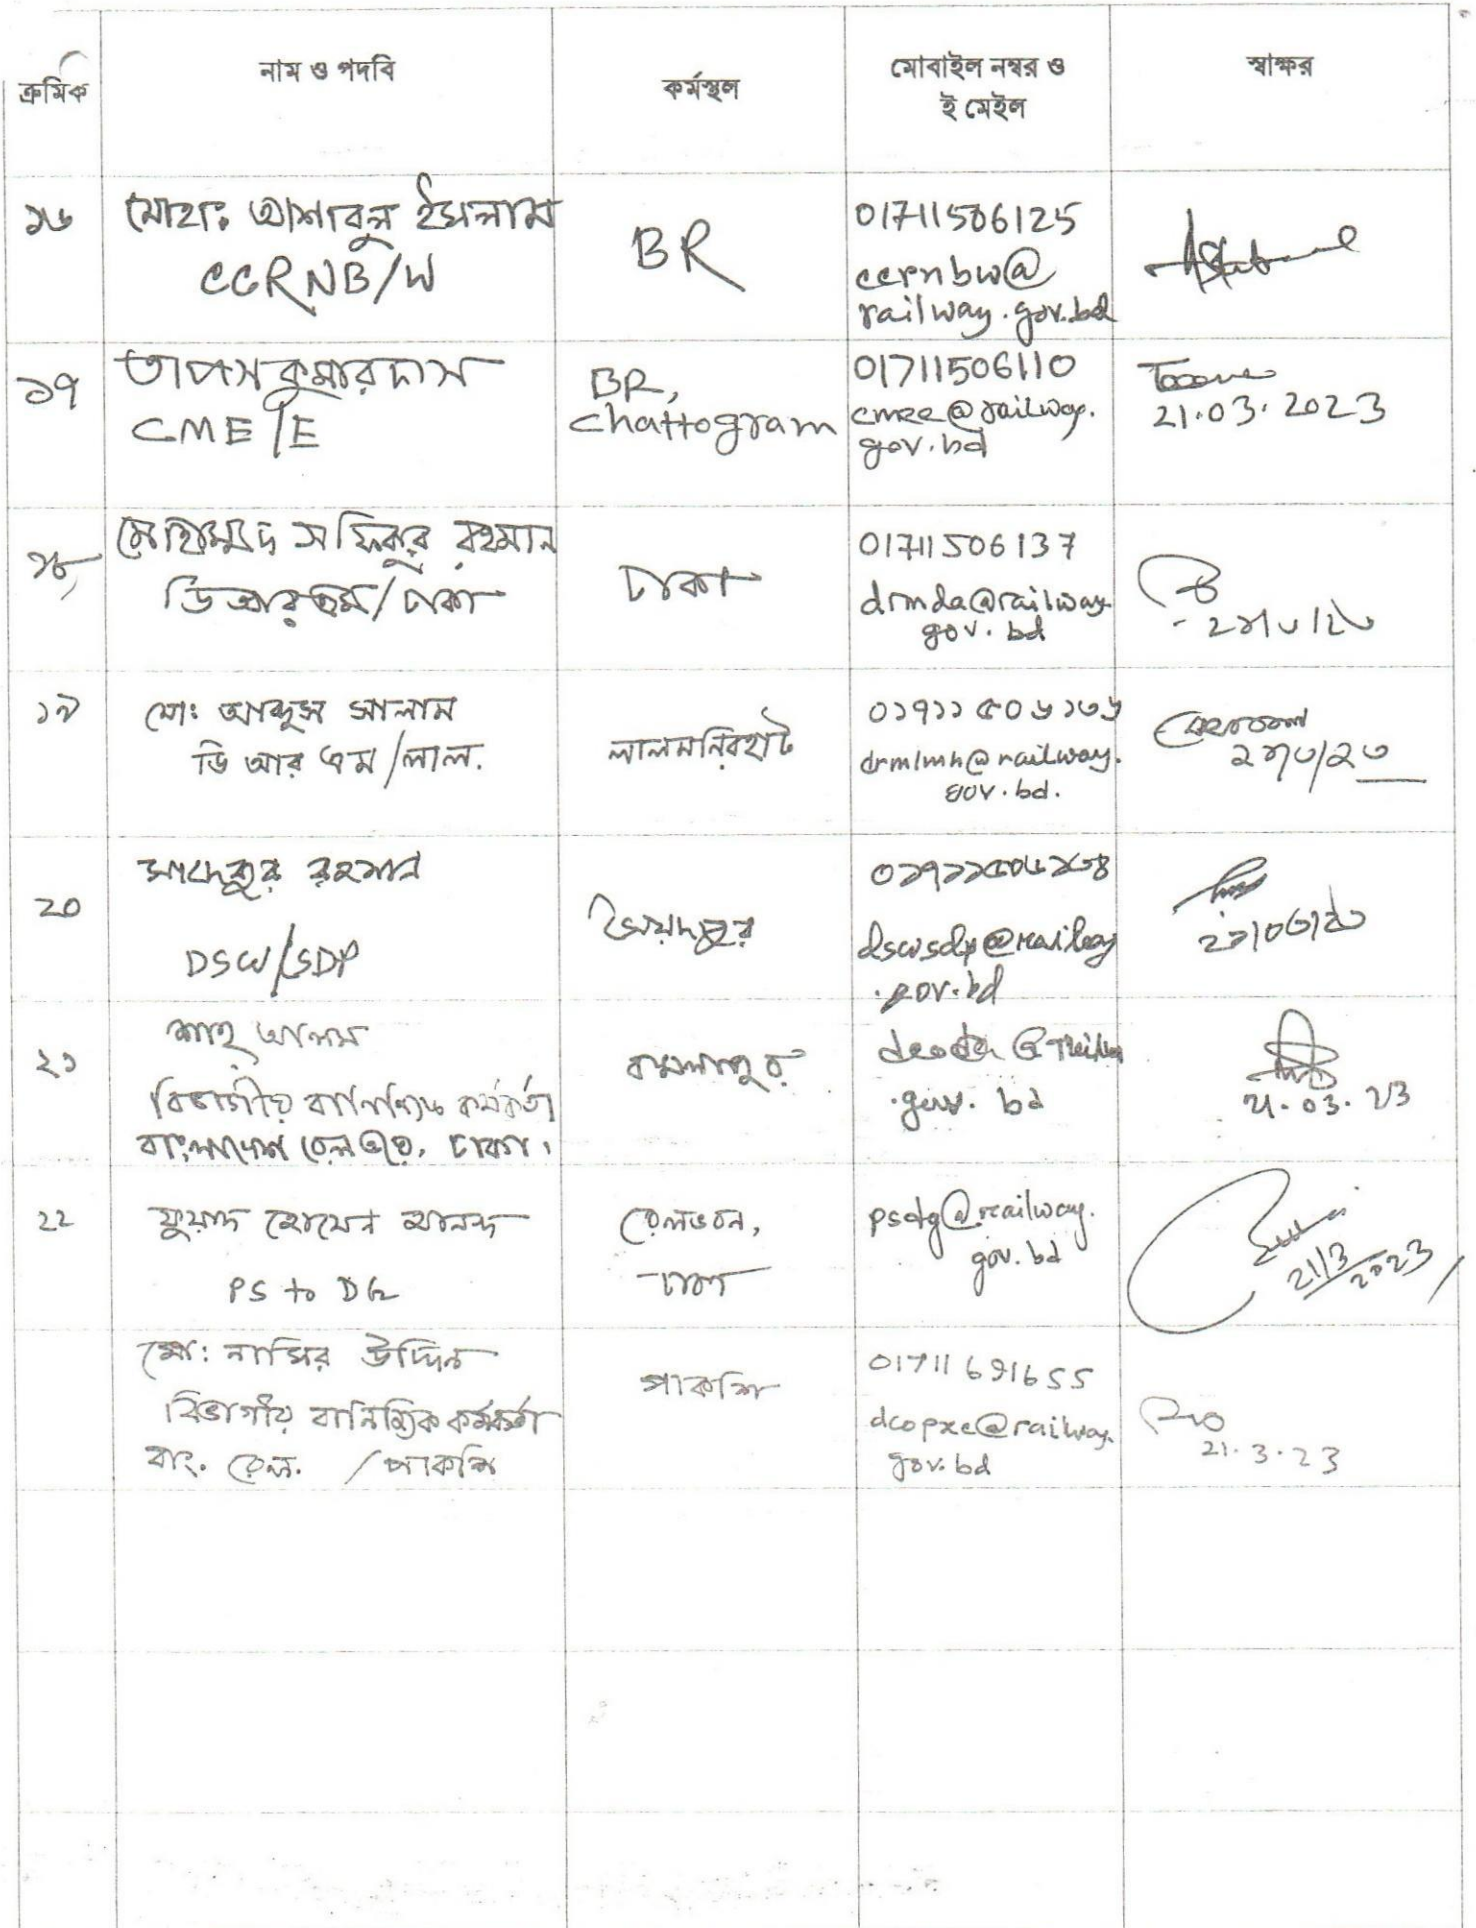 ক্রমিক
নাম ও পদবি
কর্মস্থল
মোবাইল নম্বর ও
ই মেইল
স্বাক্ষর
১৬
মোহাঃ আশাবুল ইসলাম
CCRNB/W
BR
01711506125
ccrnbw@
railway.gov.bd
১৭
তাপস কুমার দাস
CME/E
BR,
Chattogram
01711506110
cmee@railway.
gov.bd
21.03.2023
১৮
মোহাম্মদ সফিকুর রহমান
ডিআরএম/ঢাকা
ঢাকা
01711506137
drmda@railway.
gov.bd
২১/৩/২৩
১৯
মোঃ আব্দুস সালাম
ডি আর এম/লাল.
লালমনিরহাট
০১৭১১৫০৬১৩৬
drmlmh@railway.
gov.bd.
২১/৩/২৩
২০
সাদেকুর রহমান
DSW/SDP
সৈয়দপুর
dswsdp@railway
.gov.bd
২১/০৩/২৩
২১
শাহ আলম
বিভাগীয় বাণিজ্যিক কর্মকর্তা
বাংলাদেশ রেলওয়ে, ঢাকা।
কমলাপুর
.gov. bd
21.03.23
২২
ফুয়াদ হোসেন আনন্দ
PS to DG
রেলভবন,
ঢাকা
psdg@railway.
gov.bd
21/3/2023
মো: নাসির উদ্দিন
বিভাগীয় বানিজ্যিক কর্মকর্তা
বাং. রেল. /পাকশি
পাকশি
01711691655
dcopxc@railway.
gov.bd
21.3.23